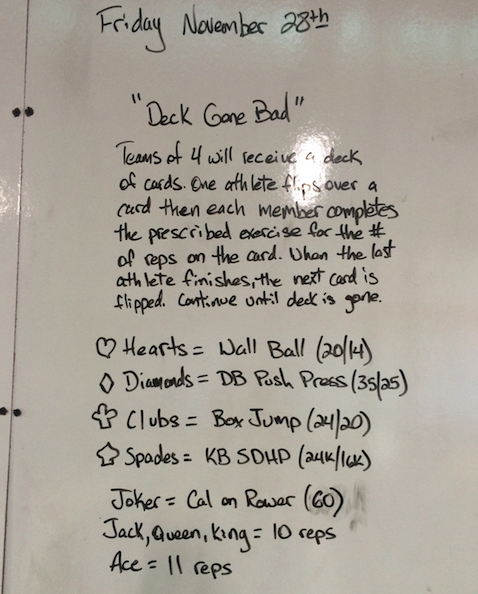 Friday November 28th
"Deck Gone Bad"
Teams of 4 will receive a deck
of cards. One athlete flips over a
card then each member completes
the prescribed exercise for the #
of reps on the card. When the last
athlete finishes, the next card is
flipped. Continue until deck is gone.
♡ Hearts = Wall Ball (20/14)
◇ Diamonds = DB Push Press (35/25)
♧ Clubs = Box Jump (24/20)
♤ Spades = KB SDHP (24K/16K)
Joker = Cal on Rower (60)
Jack, Queen, King = 10 reps
Ace = 11 reps